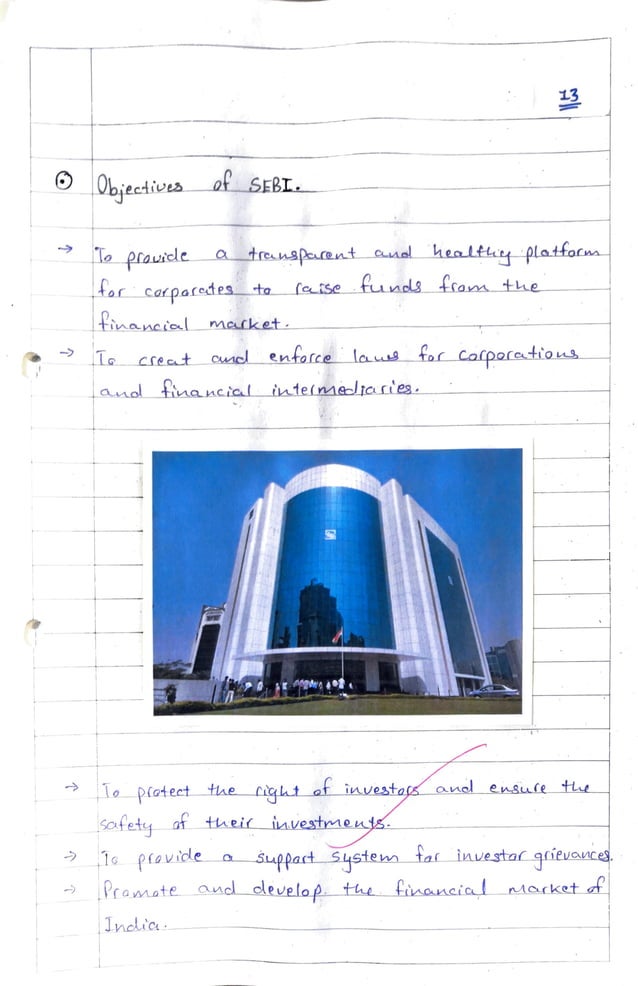 13
Objectives of SEBI.
→ To provide a transparent and healthy platform
for corporates to raise funds from the
financial market.
→ To creat and enforce laws for corporations
and financial intermediaries.
→ To protect the right of investors and ensure the
safety of their investments.
→ To provide a support system for investor grievances.
→ Promote and develop the financial market of
India.